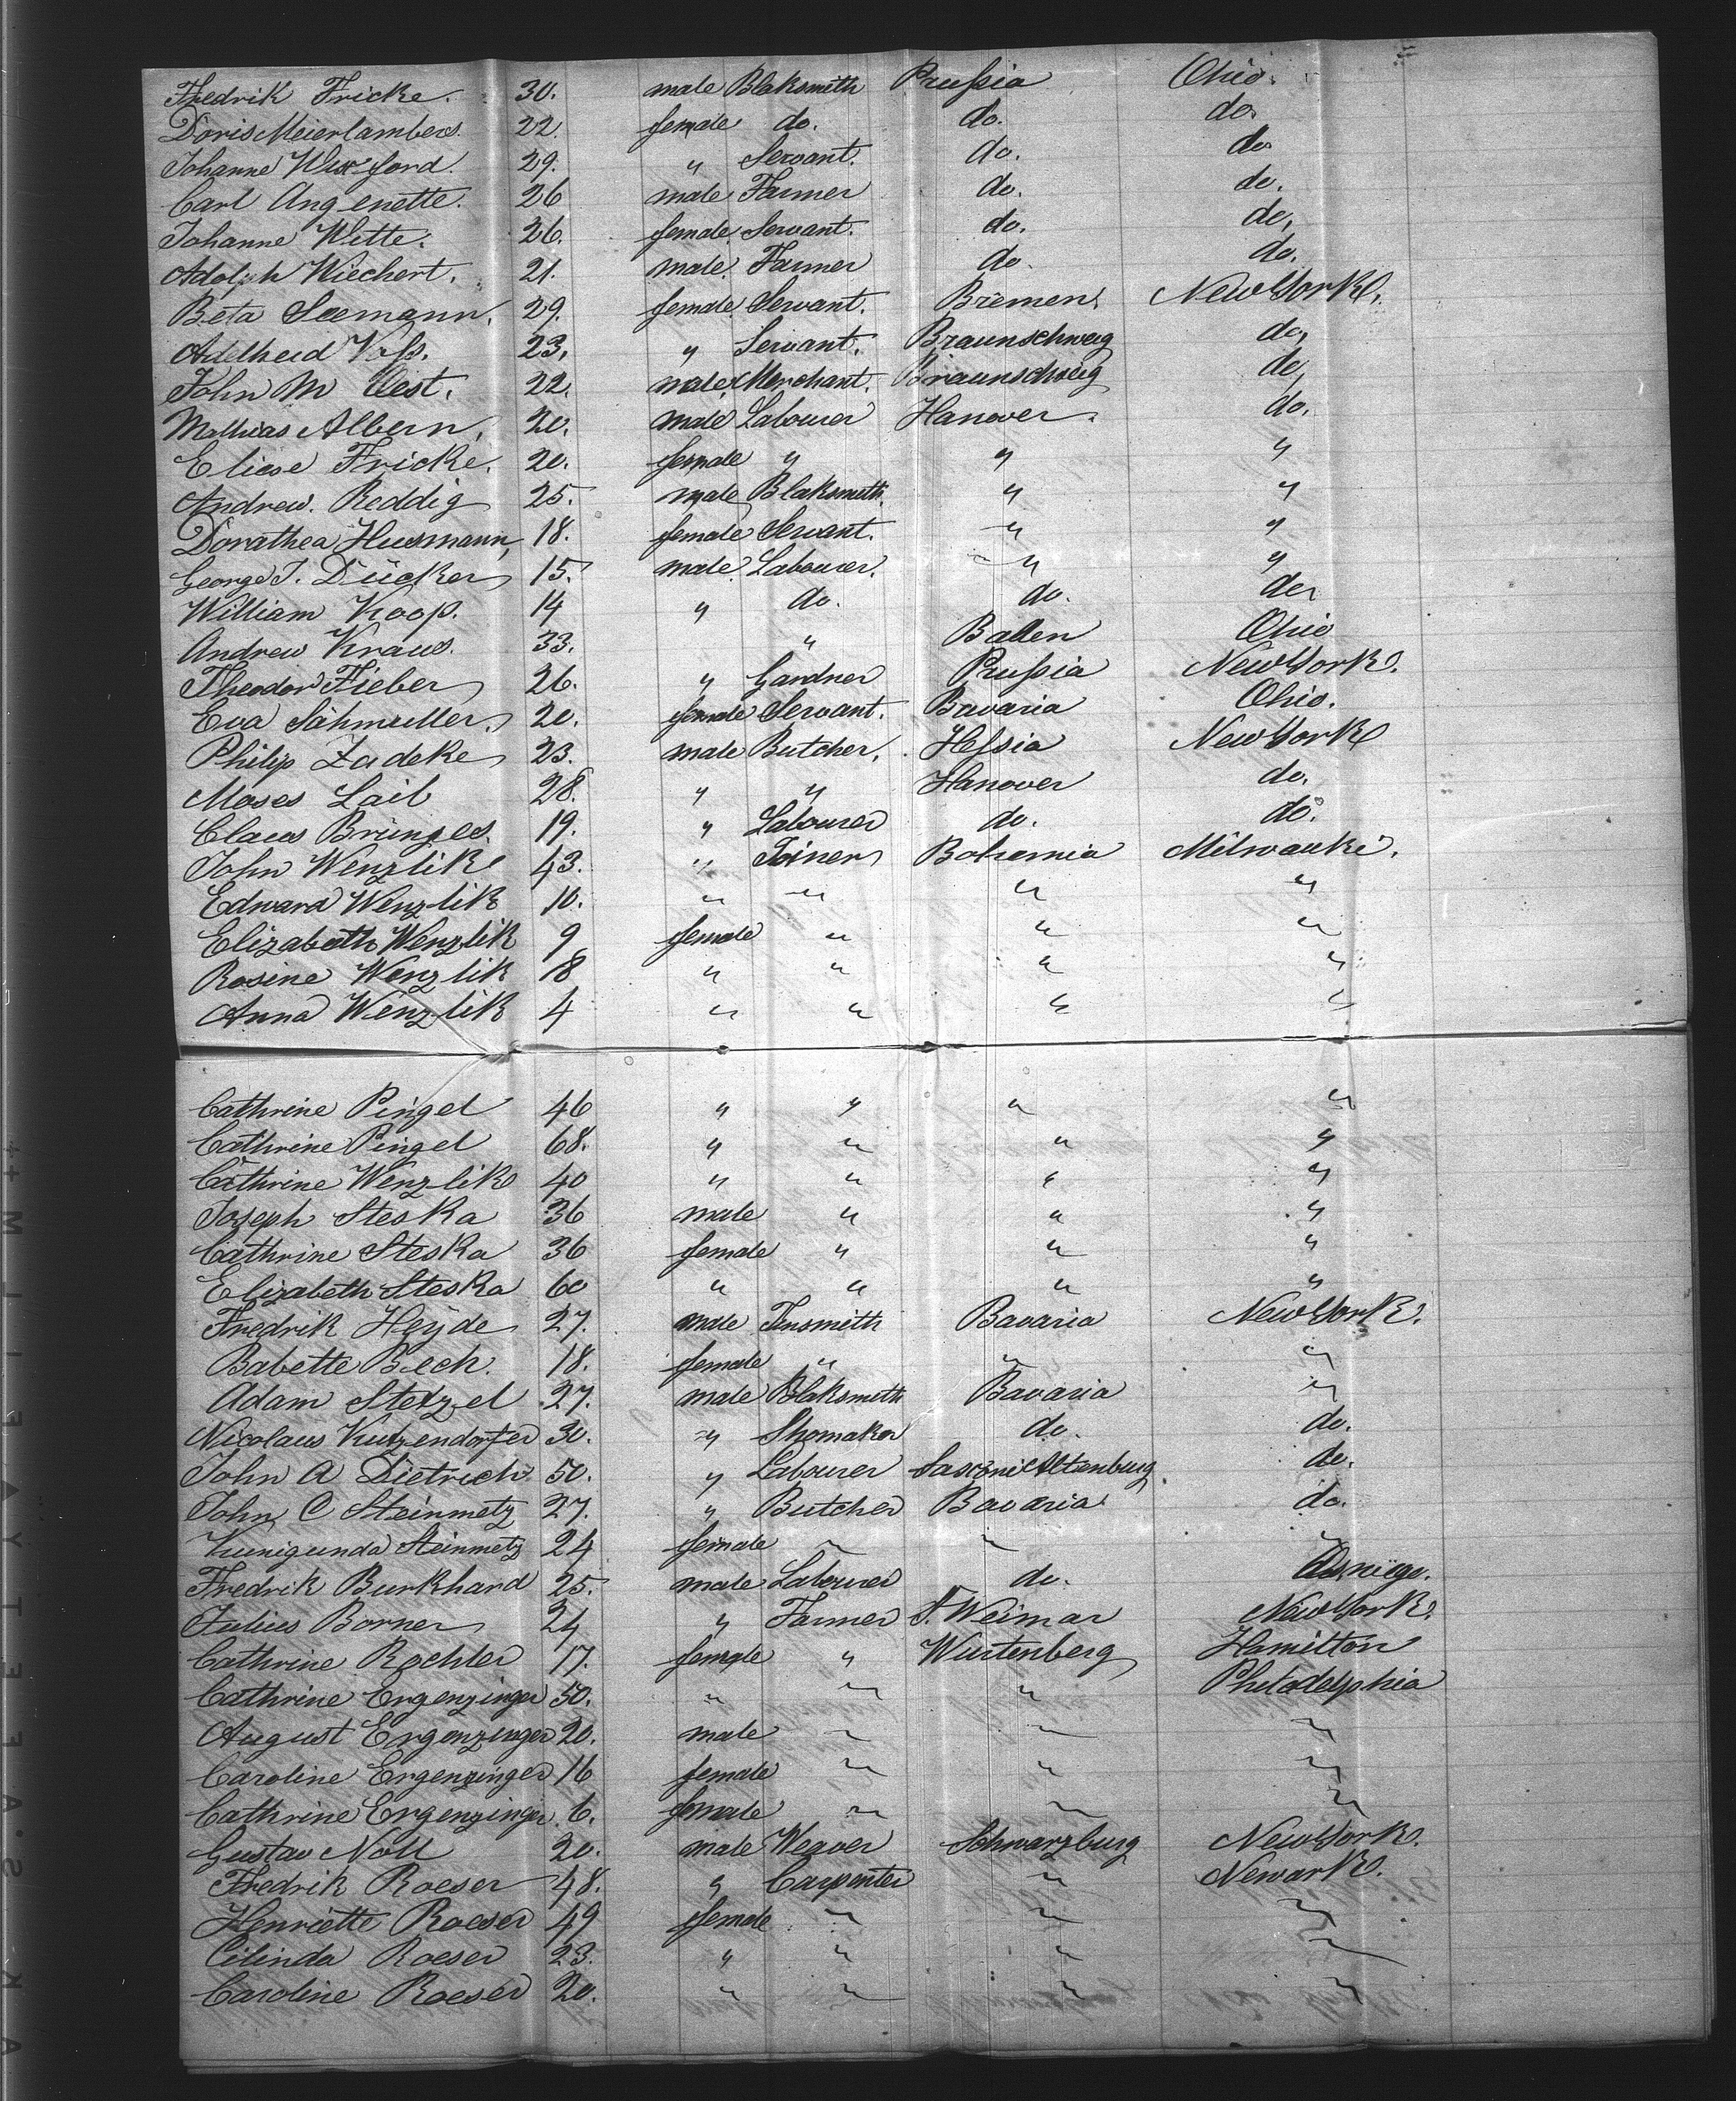 Fredrik Fricke. 30. male Blaksmith Prussia Ohio.
Doris Meierlambers. 22. female do. do. do.
Johanne Wexford. 29. " Servant. do. do
Carl Angenette. 26 male Farmer do. do.
Johanne Witte. 26. female Servant. do. do,
Adolph Wiechert. 21. male Farmer do. do.
Beta Seemann. 29. female Servant. Bremen. New York.
Adelheid Voss. 23. " Servant. Braunschweig do,
John M Oest. 22. male Merchant. Braunschweig do,
Mathias Albern, 20. male Labourer Hanover. do.
Eliese Fricke. 20. female " " "
Andrew. Reddig 25. male Blaksmith. " "
Dorathea Husmann, 18. female Servant. " "
George J. Dücker 15. male Labourer. " "
William Koop. 14 " do. do. do,
Andrew Kraus. 33. " Baden Ohio
Theodor Fieber 26. " Gardner Prussia New York.
Eva Sahmuller, 20. female Servant. Bavaria Ohio.
Philip Zadeke 23. male Butcher. Hessia New York
Moses Lail 28. " " Hanover do.
Claus Brünges. 19. " Labourer do. do.
John Wenzlik 43. " Joiner Bohemia Milwauke.
Edward Wenzlik 10. " " " "
Elizabeth Wenzlik 9 female " " "
Rosine Wenzlik 18 " " " "
Anna Wenzlik 4 " " " "
Cathrine Pingel 46 " " " "
Cathrine Pingel 68. " " " "
Cathrine Wenzlik 40 " " " "
Joseph Steska 36 male " " "
Cathrine Steska 36 female " " "
Elizabeth Steska 60 " " " "
Fredrik Heyde 27. male Tinsmith Bavaria New York.
Babette Bech. 18. female " " "
Adam Stetzel 27. male Blaksmith Bavaria "
Nicolaus Kutzendorfer 30. " Shomaker do. do.
John A Dietrich 50. " Labourer Saxonie Altenburg. do.
John C Steinmetz 27. " Butcher Bavaria do.
Kunigunda Steinmetz 24 female " " "
Fredrik Burkhard 25. male Labourer do. Oswigo.
Julius Borner 24 " Farmer S. Weimar New York.
Cathrine Rechter 17. female " Wurtenberg Hamilton
Cathrine Ergenzinger 50. " " " Philadelphia
August Ergenzinger 20. male " " "
Caroline Ergenzinger 16 female " " "
Cathrine Ergenzinger 6. female " " "
Gustav Noll 20. male Weaver Schwarzburg New York.
Fredrik Roeser 48. " Carpenter " Newark.
Henriette Roeser 49 female " " "
Cilinda Roeser 23. " " " "
Caroline Roeser 20. " " " "